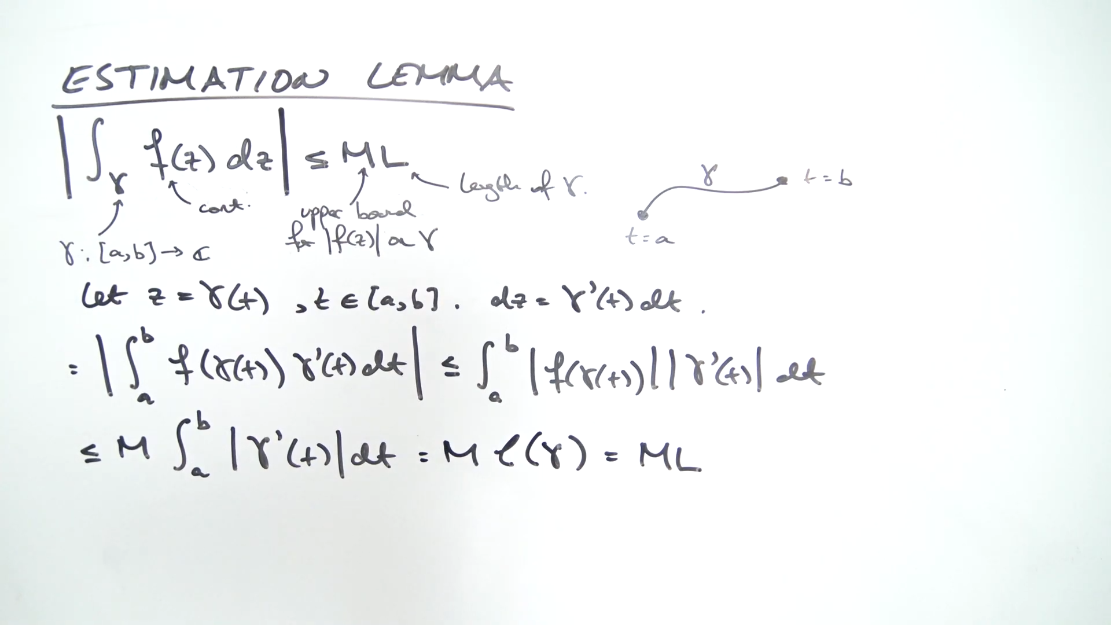 ESTIMATION LEMMA
|∫_γ f(z) dz| ≤ ML
length of γ.
cont.
upper bound
for |f(z)| on γ
γ: [a,b] → ℂ
γ
t = b
t = a
Let z = γ(t), t ∈ [a,b]. dz = γ'(t) dt.
= |∫_a^b f(γ(t)) γ'(t) dt| ≤ ∫_a^b |f(γ(t))| |γ'(t)| dt
≤ M ∫_a^b |γ'(t)| dt = M ℓ(γ) = ML.